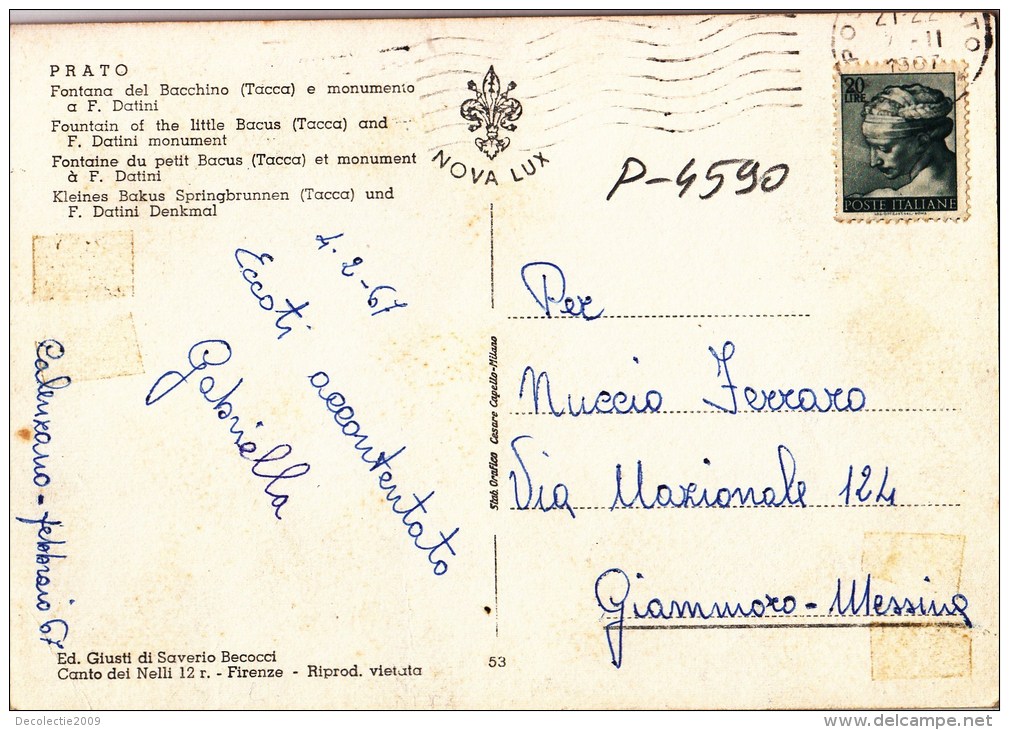 PRATO
Fontana del Bacchino (Tacca) e monumento
a F. Datini
Fountain of the little Bacus (Tacca) and
F. Datini monument
Fontaine du petit Bacus (Tacca) et monument
à F. Datini
Kleines Bakus Springbrunnen (Tacca) und
F. Datini Denkmal
NOVA LUX
P-4590
21-22
1967
20
LIRE
POSTE ITALIANE
4-2-67
Eccoti accontentato
Gabriella
Calenzano - febbraio 67
Stab. Grafico Cesare Capello-Milano
Per
Nuccio Ferraro
Via Nazionale 124
Giammoro - Messina
Ed. Giusti di Saverio Becocci
Canto dei Nelli 12 r. - Firenze - Riprod. vietata
53
Decolectie2009
www.delcampe.net